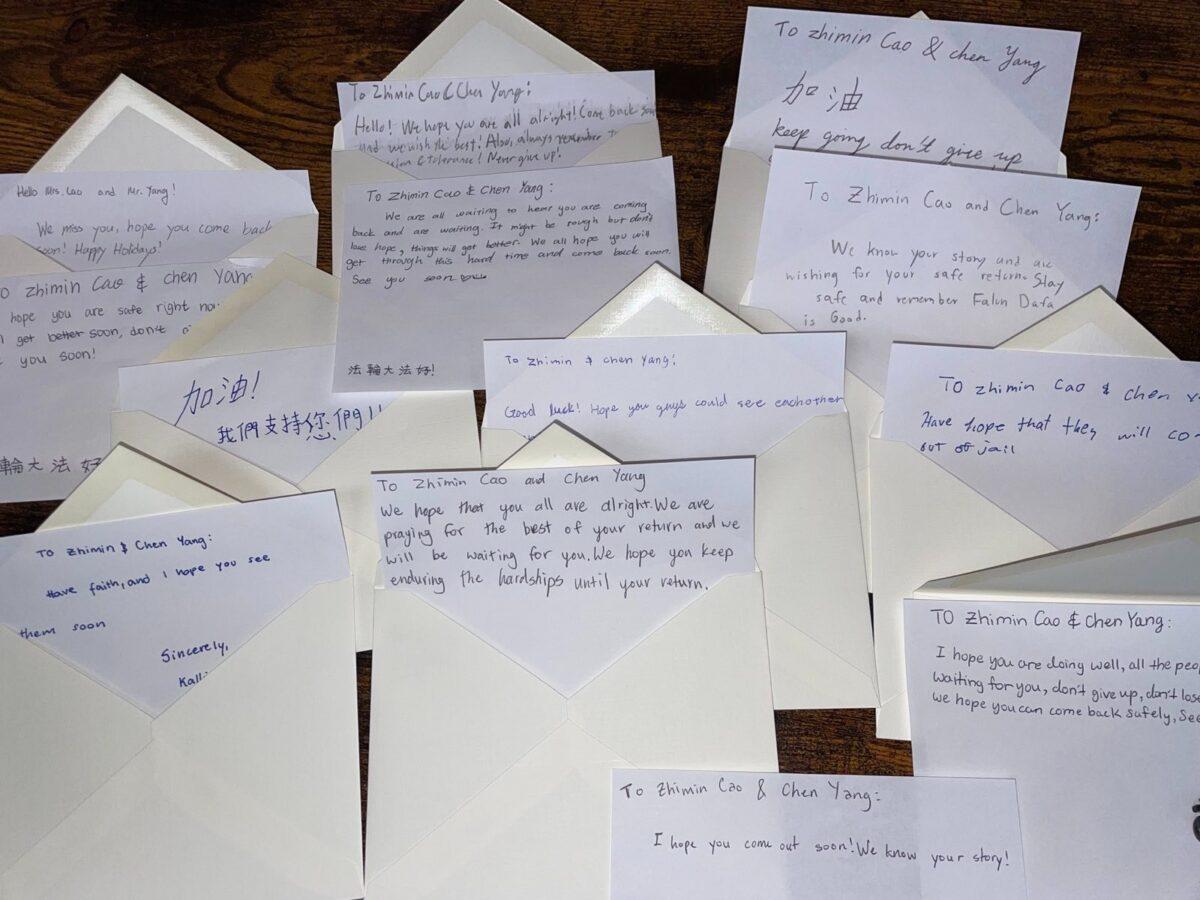 To Zhimin Cao & Chen Yang
加油
keep going don't give up
To Zhimin Cao & Chen Yang:
Hello! We hope you are all alright! Come back
and we wish the best! Also, always remember
& tolerance! Never give up!
Hello Mrs. Cao and Mr. Yang!
We miss you, hope you come back
soon! Happy Holidays!
To Zhimin Cao & Chen Yang:
We are all waiting to hear you are coming
back and are waiting. It might be rough but don't
lose hope, things will get better. We all hope you will
get through this hard time and come back soon.
See you soon
法輪大法好!
To Zhimin Cao and Chen Yang:
We know your story and are
wishing for your safe return. Stay
safe and remember Falun Dafa
is Good.
To Zhimin Cao & Chen Yang
hope you are safe right now
get better soon, don't
you soon!
輪大法好
加油!
我們支持您們!!
To Zhimin & Chen Yang!
Good luck! Hope you guys could see eachother
To Zhimin Cao & Chen
Have hope that they will
out of jail
To Zhimin & Chen Yang:
Have faith, and I hope you see
them soon
Sincerely,
To Zhimin Cao and Chen Yang
We hope that you all are alright. We are
praying for the best of your return and we
will be waiting for you. We hope you keep
enduring the hardships until your return.
To Zhimin Cao & Chen Yang:
I hope you are doing well, all the
waiting for you, don't give up, don't lose
we hope you can come back safely, See
To Zhimin Cao & Chen Yang:
I hope you come out soon! We know your story!